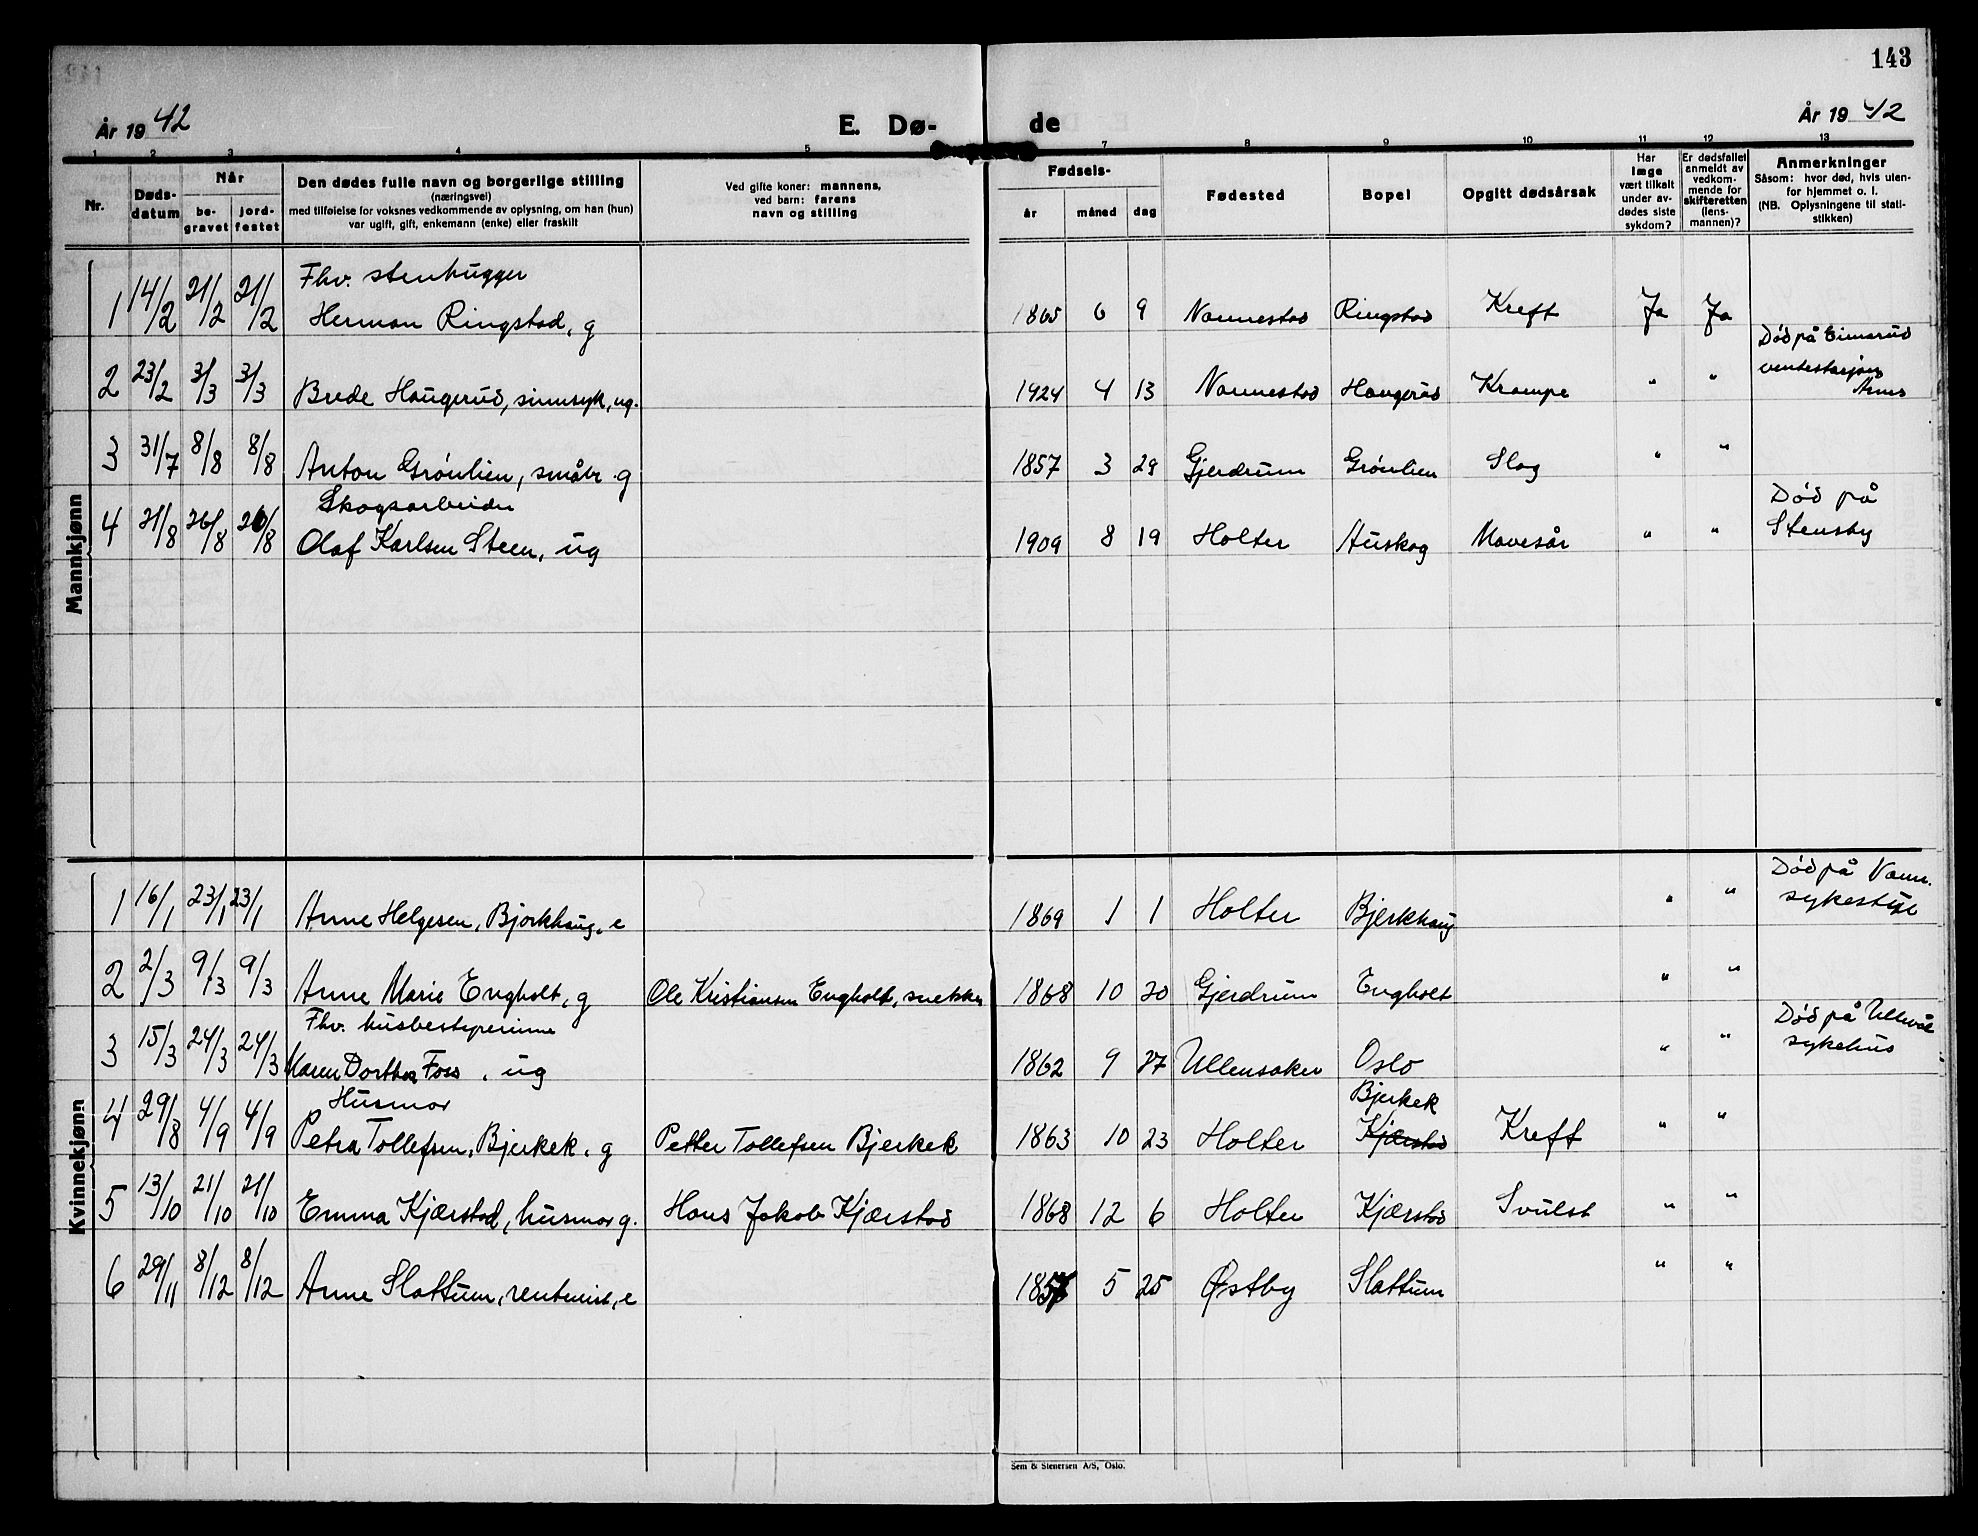 143
År 19 42
E. Dø-
de
År 19 42
1 2 3 4 5 7 8 9 10 11 12 13
Nr. Døds-datum Når be-gravet jord-festet Den dødes fulle navn og borgerlige stilling (næringsvei) med tilføielse for voksnes vedkommende av oplysning, om han (hun) var ugift, gift, enkemann (enke) eller fraskilt Ved gifte koner: mannens, ved barn: farens navn og stilling Fødsels- år måned dag Fødested Bopel Opgitt dødsårsak Har læge vært tilkalt under av-dødes siste sykdom? Er dødsfallet anmeldt av vedkom-mende for skifteretten (lens-mannen)? Anmerkninger Såsom: hvor død, hvis uten-for hjemmet o. l. (NB. Oplysningene til stati-stikken)
Mannkjønn
Fhv. stenhugger
1 14/2 21/2 21/2 Herman Ringstad, g 1865 6 9 Nannestad Ringstad Kreft Ja Ja
Død på
2 23/2 3/3 3/3 Brede Haugerud, sinnsyk, ug. 1924 4 13 Nannestad Haugerud Krampe " "
3 31/7 8/8 8/8 Anton Grönlien, småbr. g 1857 3 29 Gjerdrum Grönlien Slag " "
Skogsarbeider
Død på
4 21/8 26/8 26/8 Olaf Karlsen Steen, ug 1909 8 19 Holter Auskog Mavesår " " Stensby
Kvinnekjønn
Død på Nann.
1 16/1 23/1 23/1 Anne Helgesen, Bjørkhaug, e 1869 1 1 Holter Bjerkhaug " " sykestue
2 2/3 9/3 9/3 Anne Marie Engholt, g Ole Kristiansen Engholt, snekker 1868 10 20 Gjerdrum Engholt " "
Fhv. husbestyrerinne
Død på Ullevål
3 15/3 24/3 24/3 Maren Dorthea Foss, ug 1862 9 27 Ullensaker Oslo " " sykehus
Husmor
Bjerkek
4 29/8 4/9 4/9 Petra Tollefsen, Bjerkek, g Petter Tollefsen Bjerkek 1863 10 23 Holter Kjærstad Kreft " "
5 13/10 21/10 21/10 Emma Kjærstad, husmor g. Hans Jakob Kjærstad 1868 12 6 Holter Kjærstad Svulst " "
6 29/11 8/12 8/12 Anne Slattum, rentenist, e 5 25 Østby Slattum " "
Sem & Stenersen A/S, Oslo.